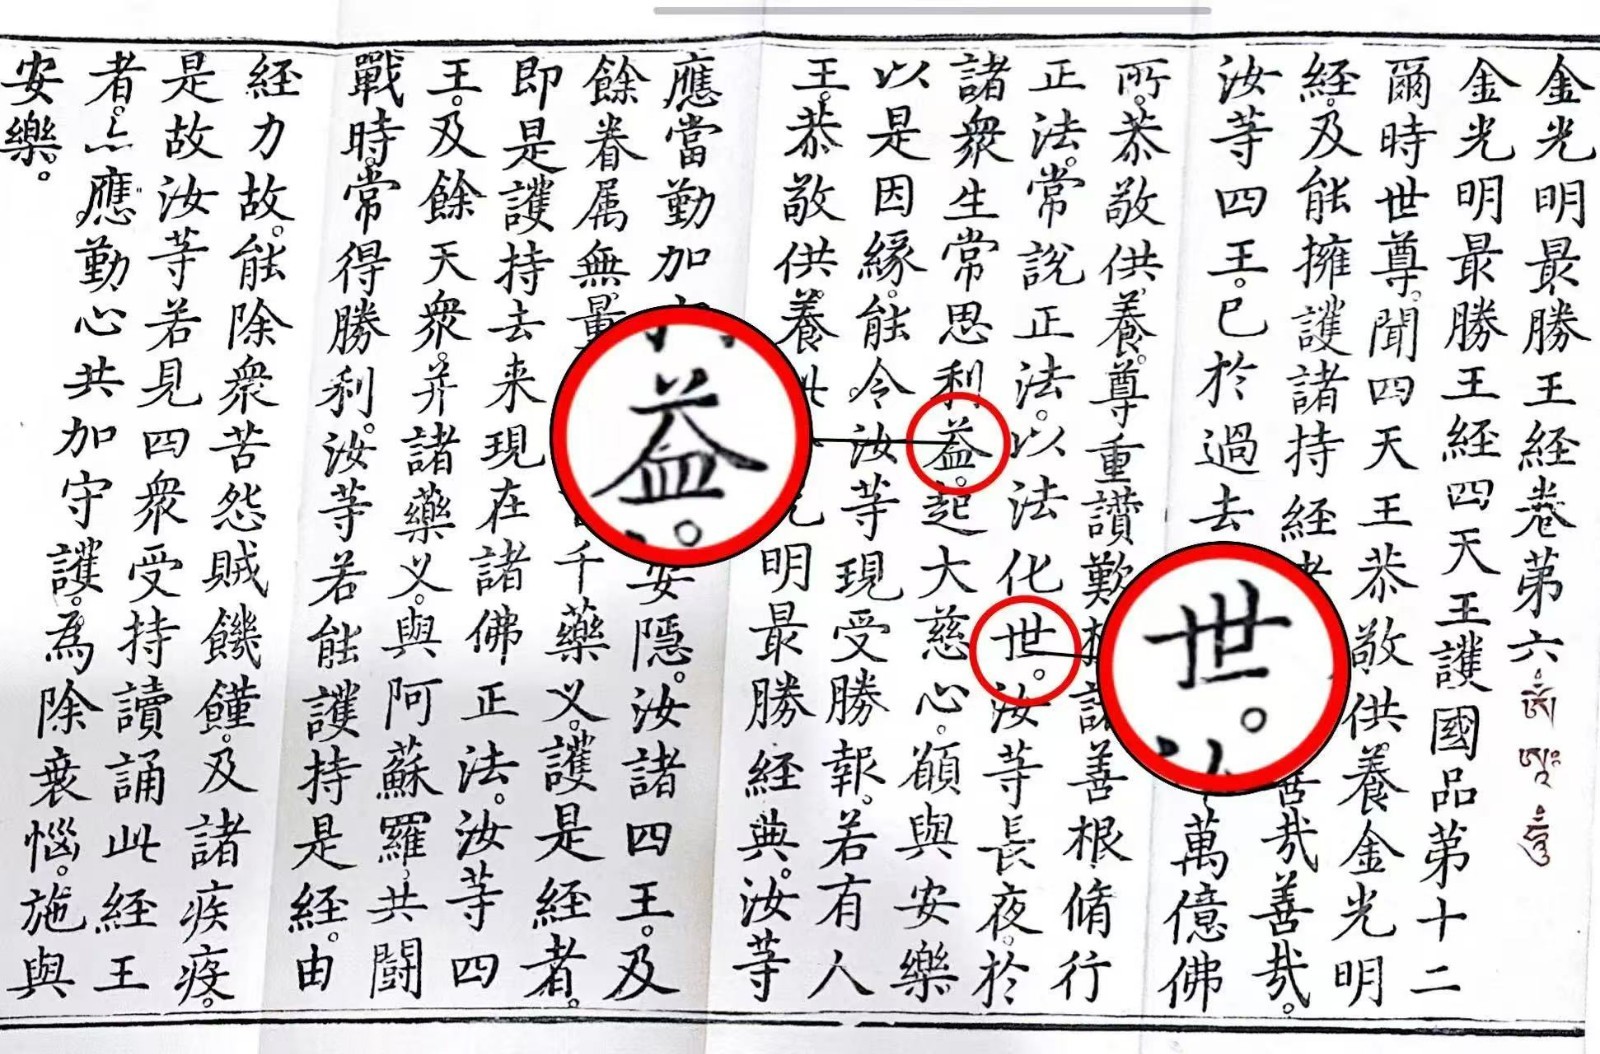 金光明最勝王経卷第六。ༀ ཨཱཿ ཧཱུྃ
金光明最勝王経四天王護國品第十二
爾時世尊。聞四天王恭敬供養金光明
経。及能擁護諸持経者善哉善哉。
汝等四王。已於過去萬億佛
所。恭敬供養。尊重讃歎植諸善根脩行
正法。常說正法。以法化世。汝等長夜。於
諸衆生常思利益。起大慈心。願與安樂
以是因緣。能令汝等現受勝報。若有人
王。恭敬供養明最勝経典。汝等
應當勤加安隱。汝諸四王。及
餘眷属無量千藥义。護是経者。
即是護持去来現在諸佛正法。汝等四
王。及餘天衆。并諸藥义。與阿蘇羅共鬪
戰時。常得勝利。汝等若能護持是経。由
経力故。能除衆苦怨賊饑饉。及諸疾疫。
是故汝等若見四衆受持讀誦此経王
者。亦應勤心共加守護。為除衰惱。施與
安樂。
世。
益。